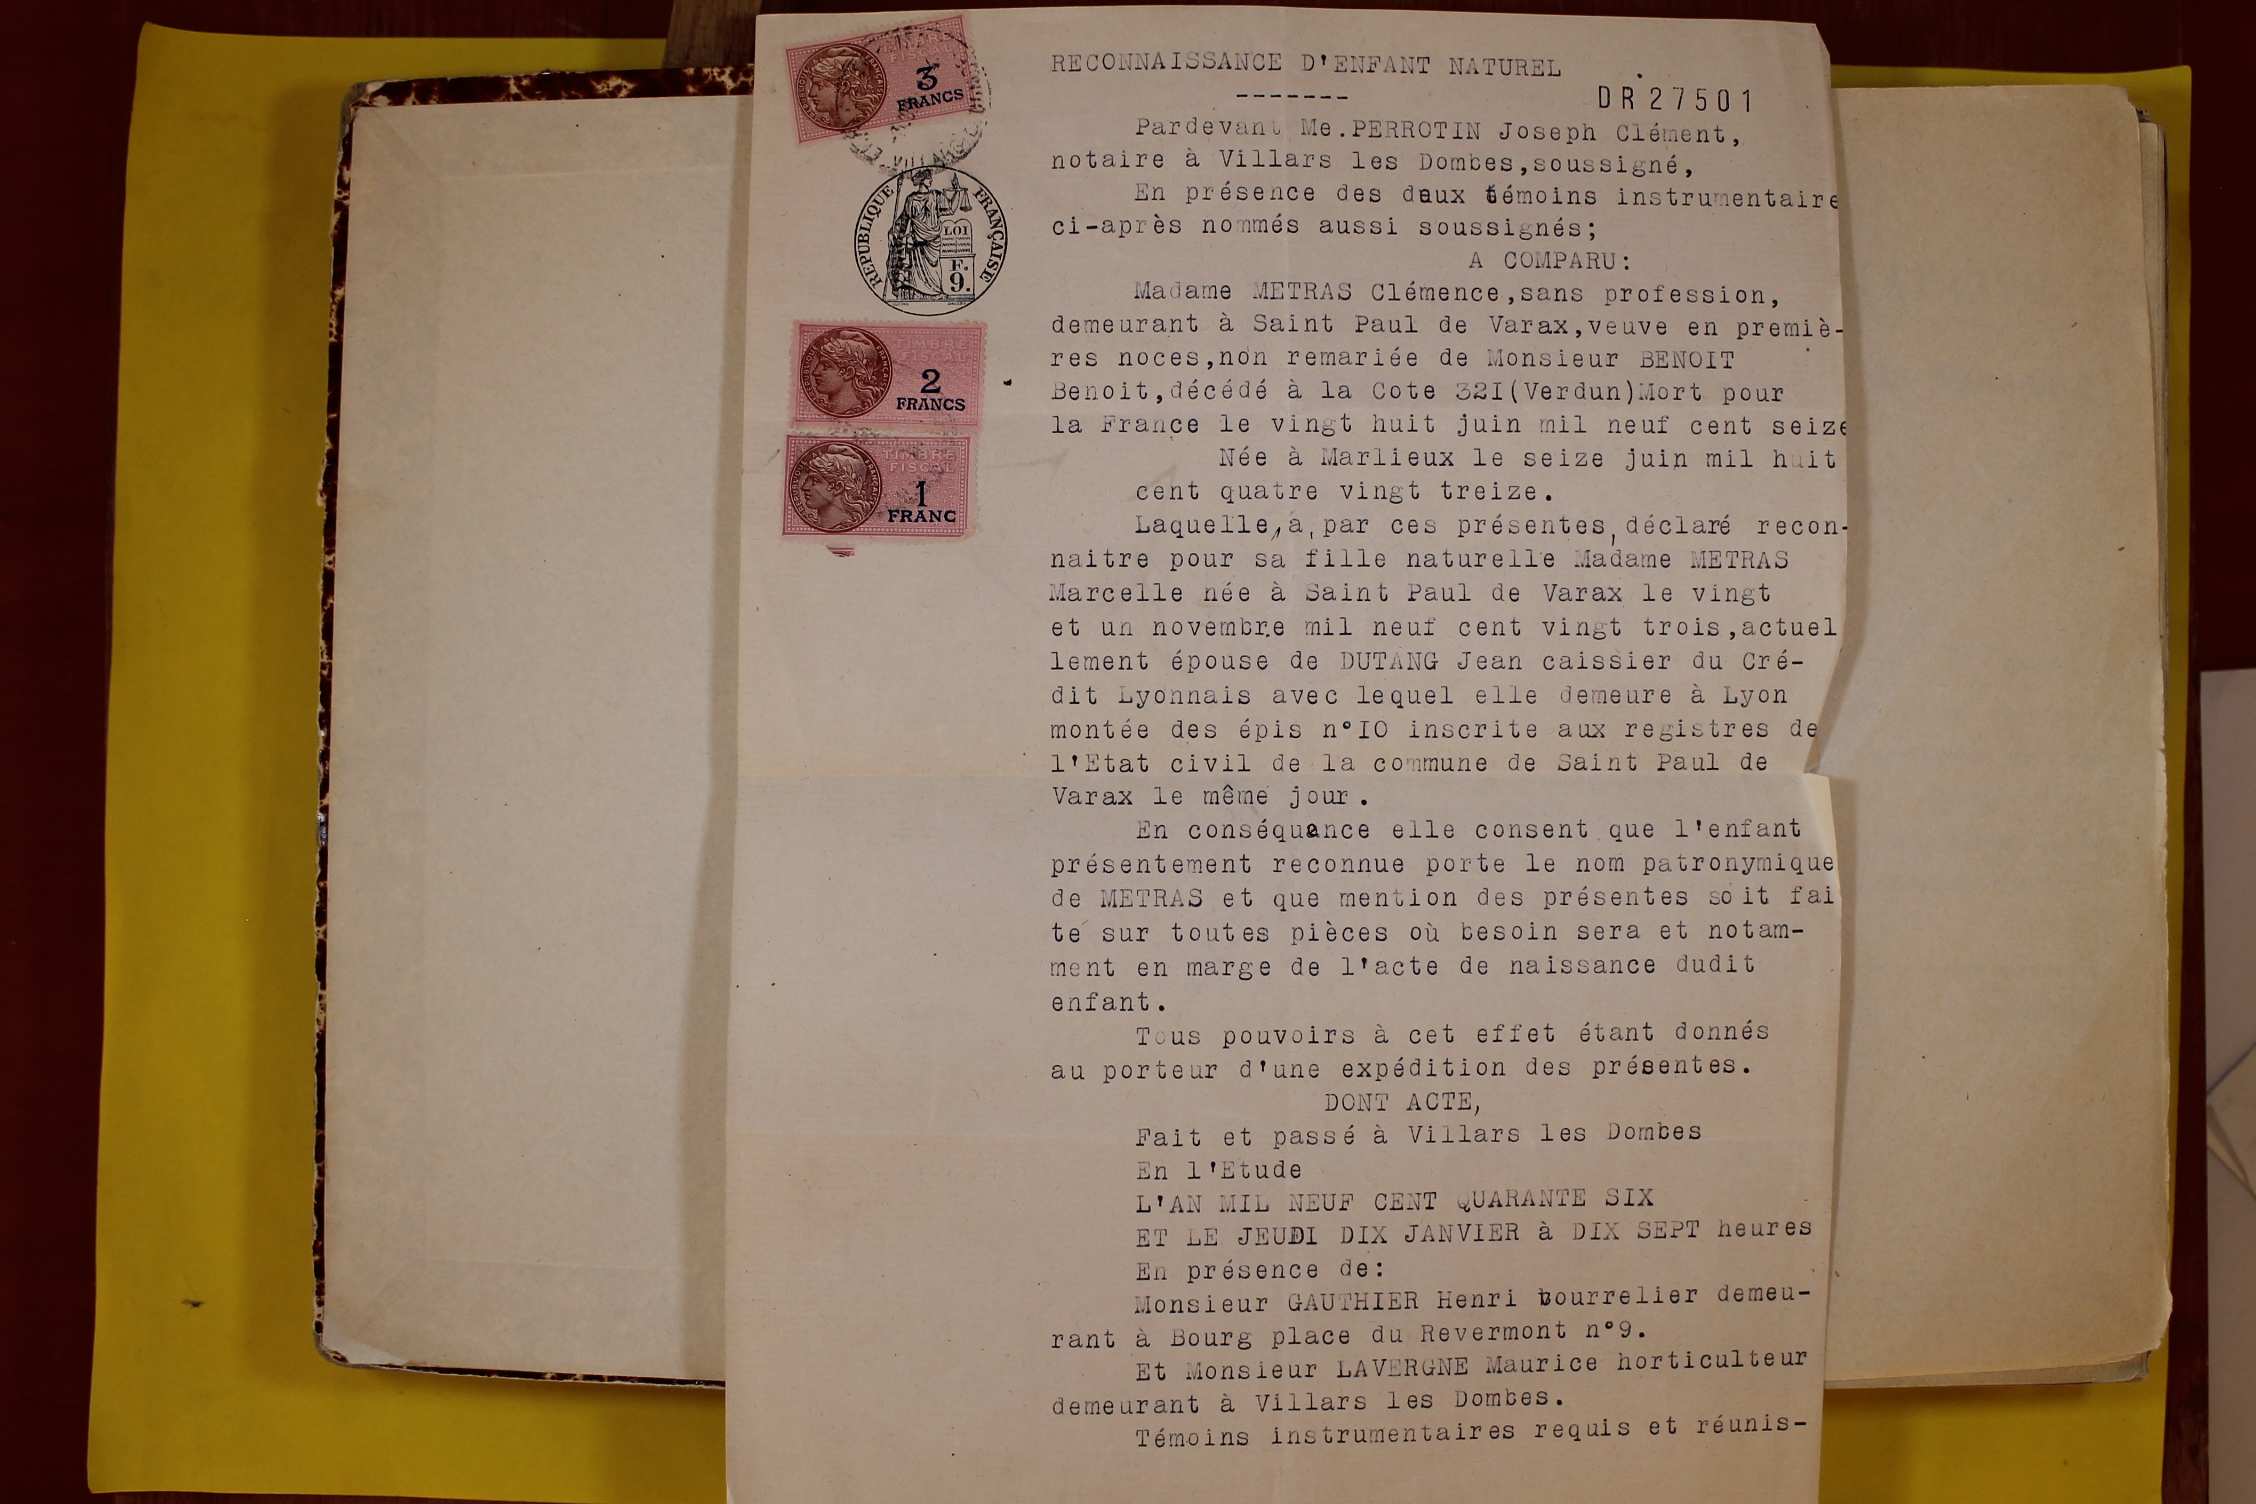 RECONNAISSANCE D'ENFANT NATUREL
-------
DR27501
3
FRANCS
RÉPUBLIQUE FRANÇAISE
LOI
F.
9.
TIMBRE
FISCAL
2
FRANCS
TIMBRE
FISCAL
1
FRANC
Pardevant Me.PERROTIN Joseph Clément,
notaire à Villars les Dombes,soussigné,
En présence des deux témoins instrumentaire
ci-après nommés aussi soussignés;
A COMPARU:
Madame METRAS Clémence,sans profession,
demeurant à Saint Paul de Varax,veuve en premiè-
res noces,non remariée de Monsieur BENOIT
Benoit,décédé à la Cote 32I(Verdun)Mort pour
la France le vingt huit juin mil neuf cent seize
Née à Marlieux le seize juin mil huit
cent quatre vingt treize.
Laquelle,a,par ces présentes,déclaré recon-
naitre pour sa fille naturelle Madame METRAS
Marcelle née à Saint Paul de Varax le vingt
et un novembre mil neuf cent vingt trois,actuel
lement épouse de DUTANG Jean caissier du Cré-
dit Lyonnais avec lequel elle demeure à Lyon
montée des épis n°IO inscrite aux registres de
l'Etat civil de la commune de Saint Paul de
Varax le même jour.
En conséquence elle consent que l'enfant
présentement reconnue porte le nom patronymique
de METRAS et que mention des présentes soit fai
te sur toutes pièces où besoin sera et notam-
ment en marge de l'acte de naissance dudit
enfant.
Tous pouvoirs à cet effet étant donnés
au porteur d'une expédition des présentes.
DONT ACTE,
Fait et passé à Villars les Dombes
En l'Etude
L'AN MIL NEUF CENT QUARANTE SIX
ET LE JEUDI DIX JANVIER à DIX SEPT heures
En présence de:
Monsieur GAUTHIER Henri bourrelier demeu-
rant à Bourg place du Revermont n°9.
Et Monsieur LAVERGNE Maurice horticulteur
demeurant à Villars les Dombes.
Témoins instrumentaires requis et réunis-